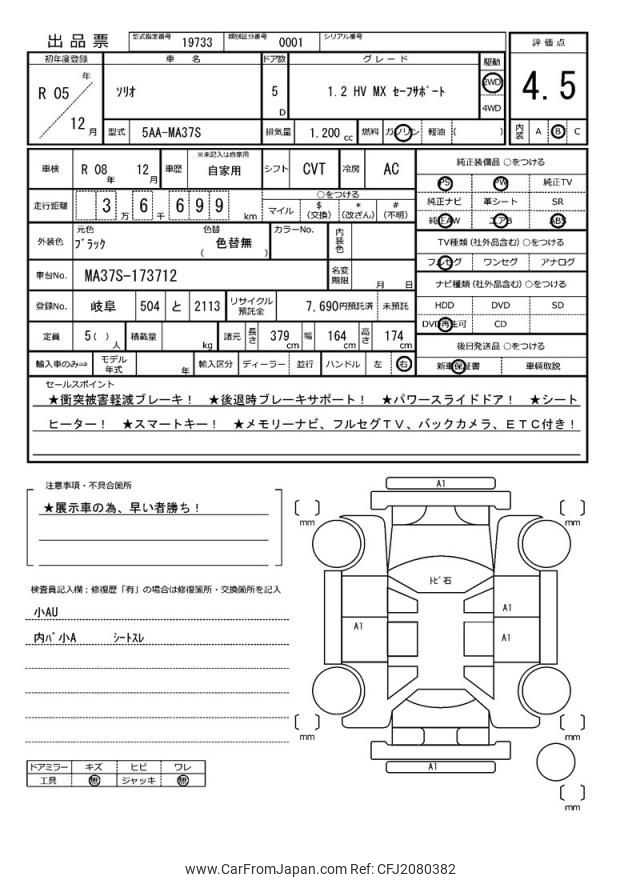 出品票
型式指定番号 19733 類別区分番号 0001 シリアル番号
評価点
初年度登録 車名 ドア数 グレード 駆動
R 05 年 ソリオ 5 D 1.2 HV MX セーフサポート 2WD 4.5
4WD
12 月 型式 5AA-MA37S 排気量 1,200 cc 燃料 ガソリン 軽油 ( ) 内装 A B C
車検 R 08 年 12 月 車歴 ※未記入は自家用 自家用 シフト CVT 冷房 AC
純正装備品 ○をつける
PS PW 純正TV
走行距離 3 万 6 千 6 9 9 km
○をつける
マイル $ (交換) * (改ざん) # (不明)
純正ナビ 革シート SR
純正AW エアB ABS
外装色 元色 ブラック 色替 ( 色替無 ) カラーNo. 内装色
TV種類(社外品含む) ○をつける
フルセグ ワンセグ アナログ
車台No. MA37S-173712 名変期限 月 日
ナビ種類(社外品含む) ○をつける
登録No. 岐阜 504 と 2113 リサイクル預託金 7,690円預託済 未預託
HDD DVD SD
DVD再生可 CD
定員 5 ( ) 人 積載量 kg 諸元 長さ 379 cm 幅 164 cm 高さ 174 cm
後日発送品 ○をつける
輸入車のみ⇒ モデル年式 年 輸入区分 ディーラー 並行 ハンドル 左 右
新車保証書 車輌取説
セールスポイント
★衝突被害軽減ブレーキ! ★後退時ブレーキサポート! ★パワースライドドア! ★シート
ヒーター! ★スマートキー! ★メモリーナビ、フルセグTV、バックカメラ、ETC付き!
注意事項・不具合箇所
★展示車の為、早い者勝ち!
検査員記入欄:修復歴「有」の場合は修復箇所・交換箇所を記入
小AU
内バ小A シートスレ
ドアミラー キズ ヒビ ワレ
工具 無 ジャッキ 無
A1
mm
mm
トビ石
A1
A1
A1
mm
mm
A1
mm
www.CarFromJapan.com Ref: CFJ2080382